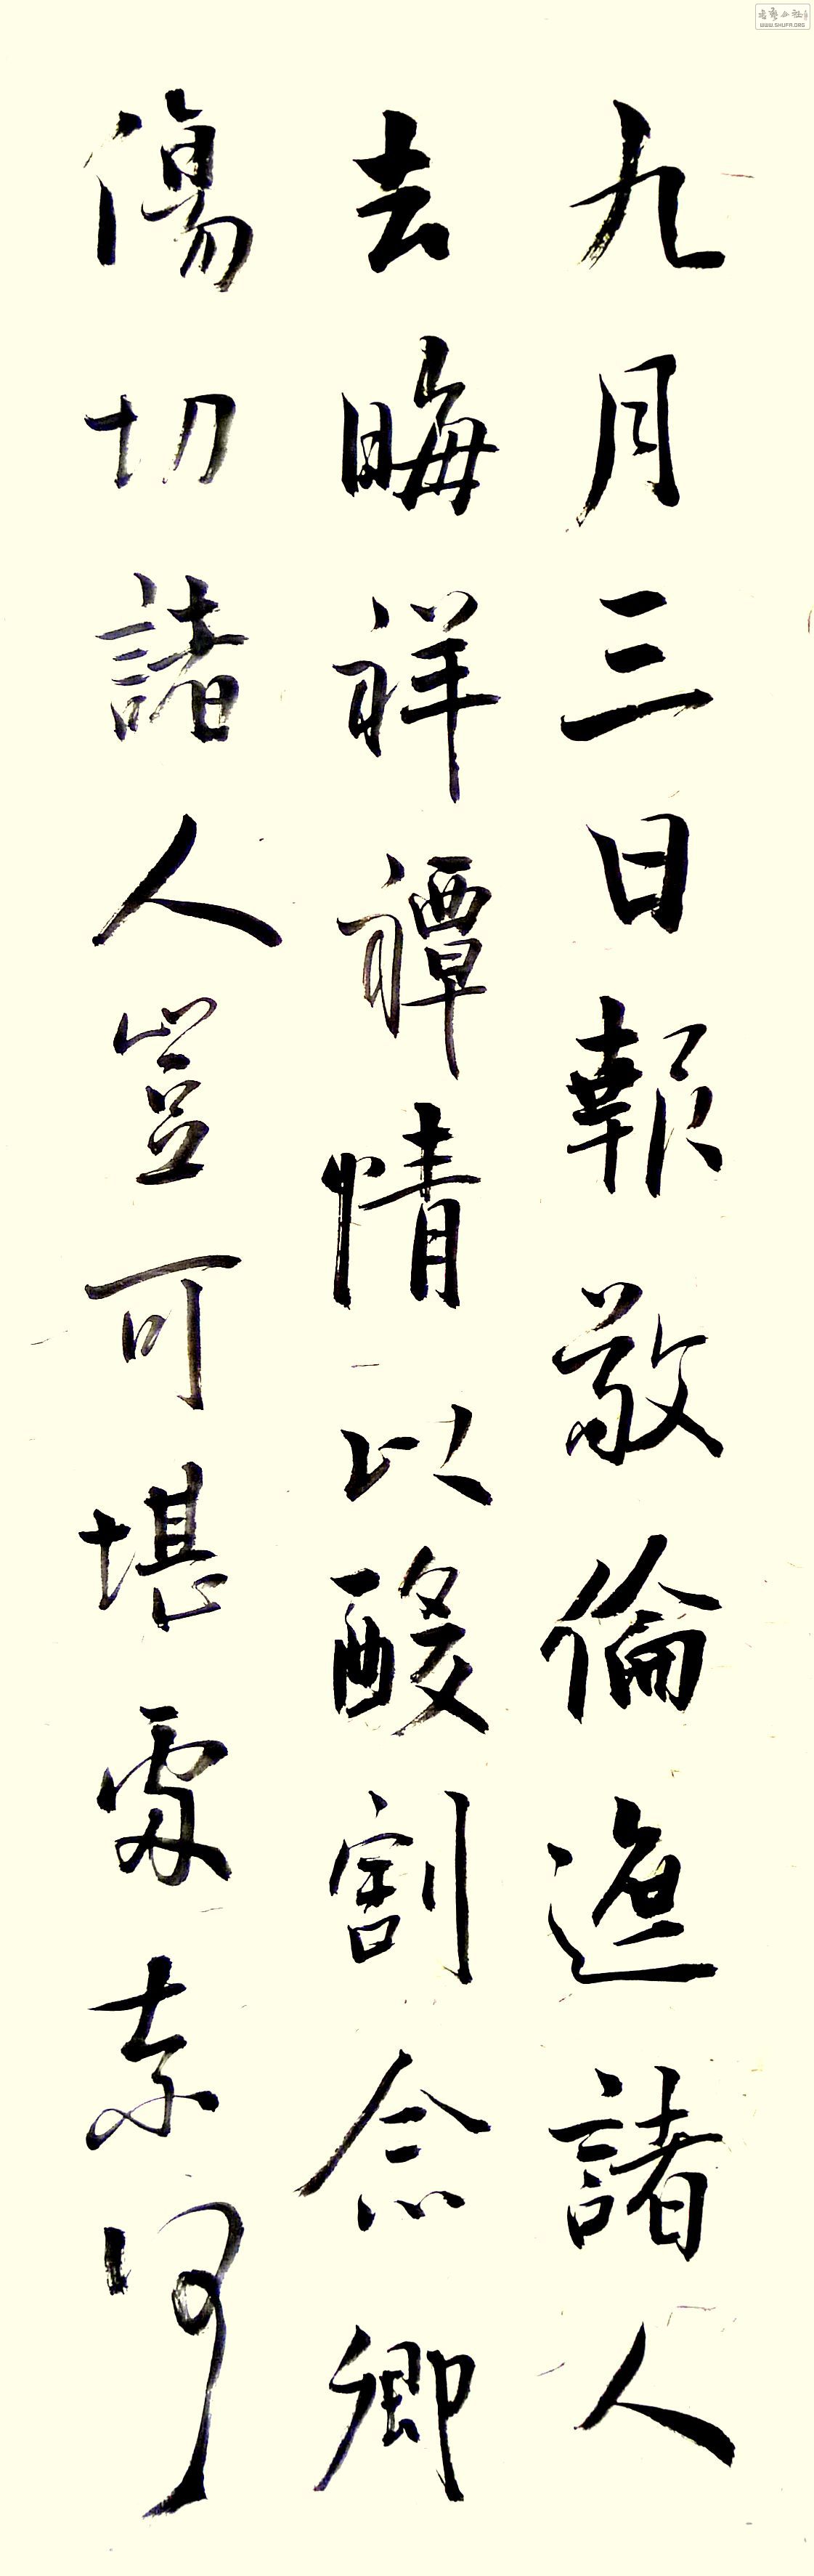 九月三日報敬倫遮諸人
去晦祥禫情以酸割念卿
傷切諸人豈可堪處奈何
WWW.SHUFA.ORG